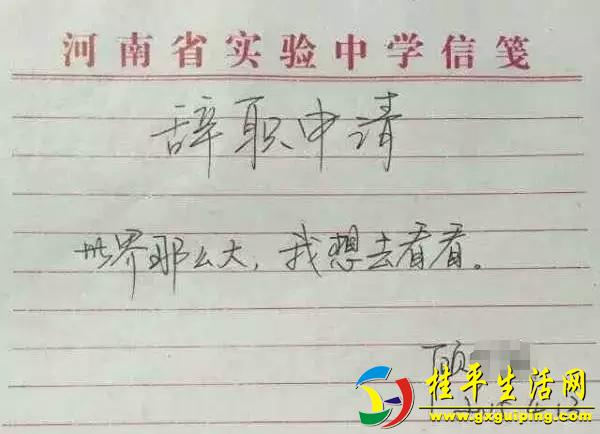 河南省实验中学信笺
辞职申请
世界那么大，我想去看看。
顾
桂平生活网
www.gxguiping.com